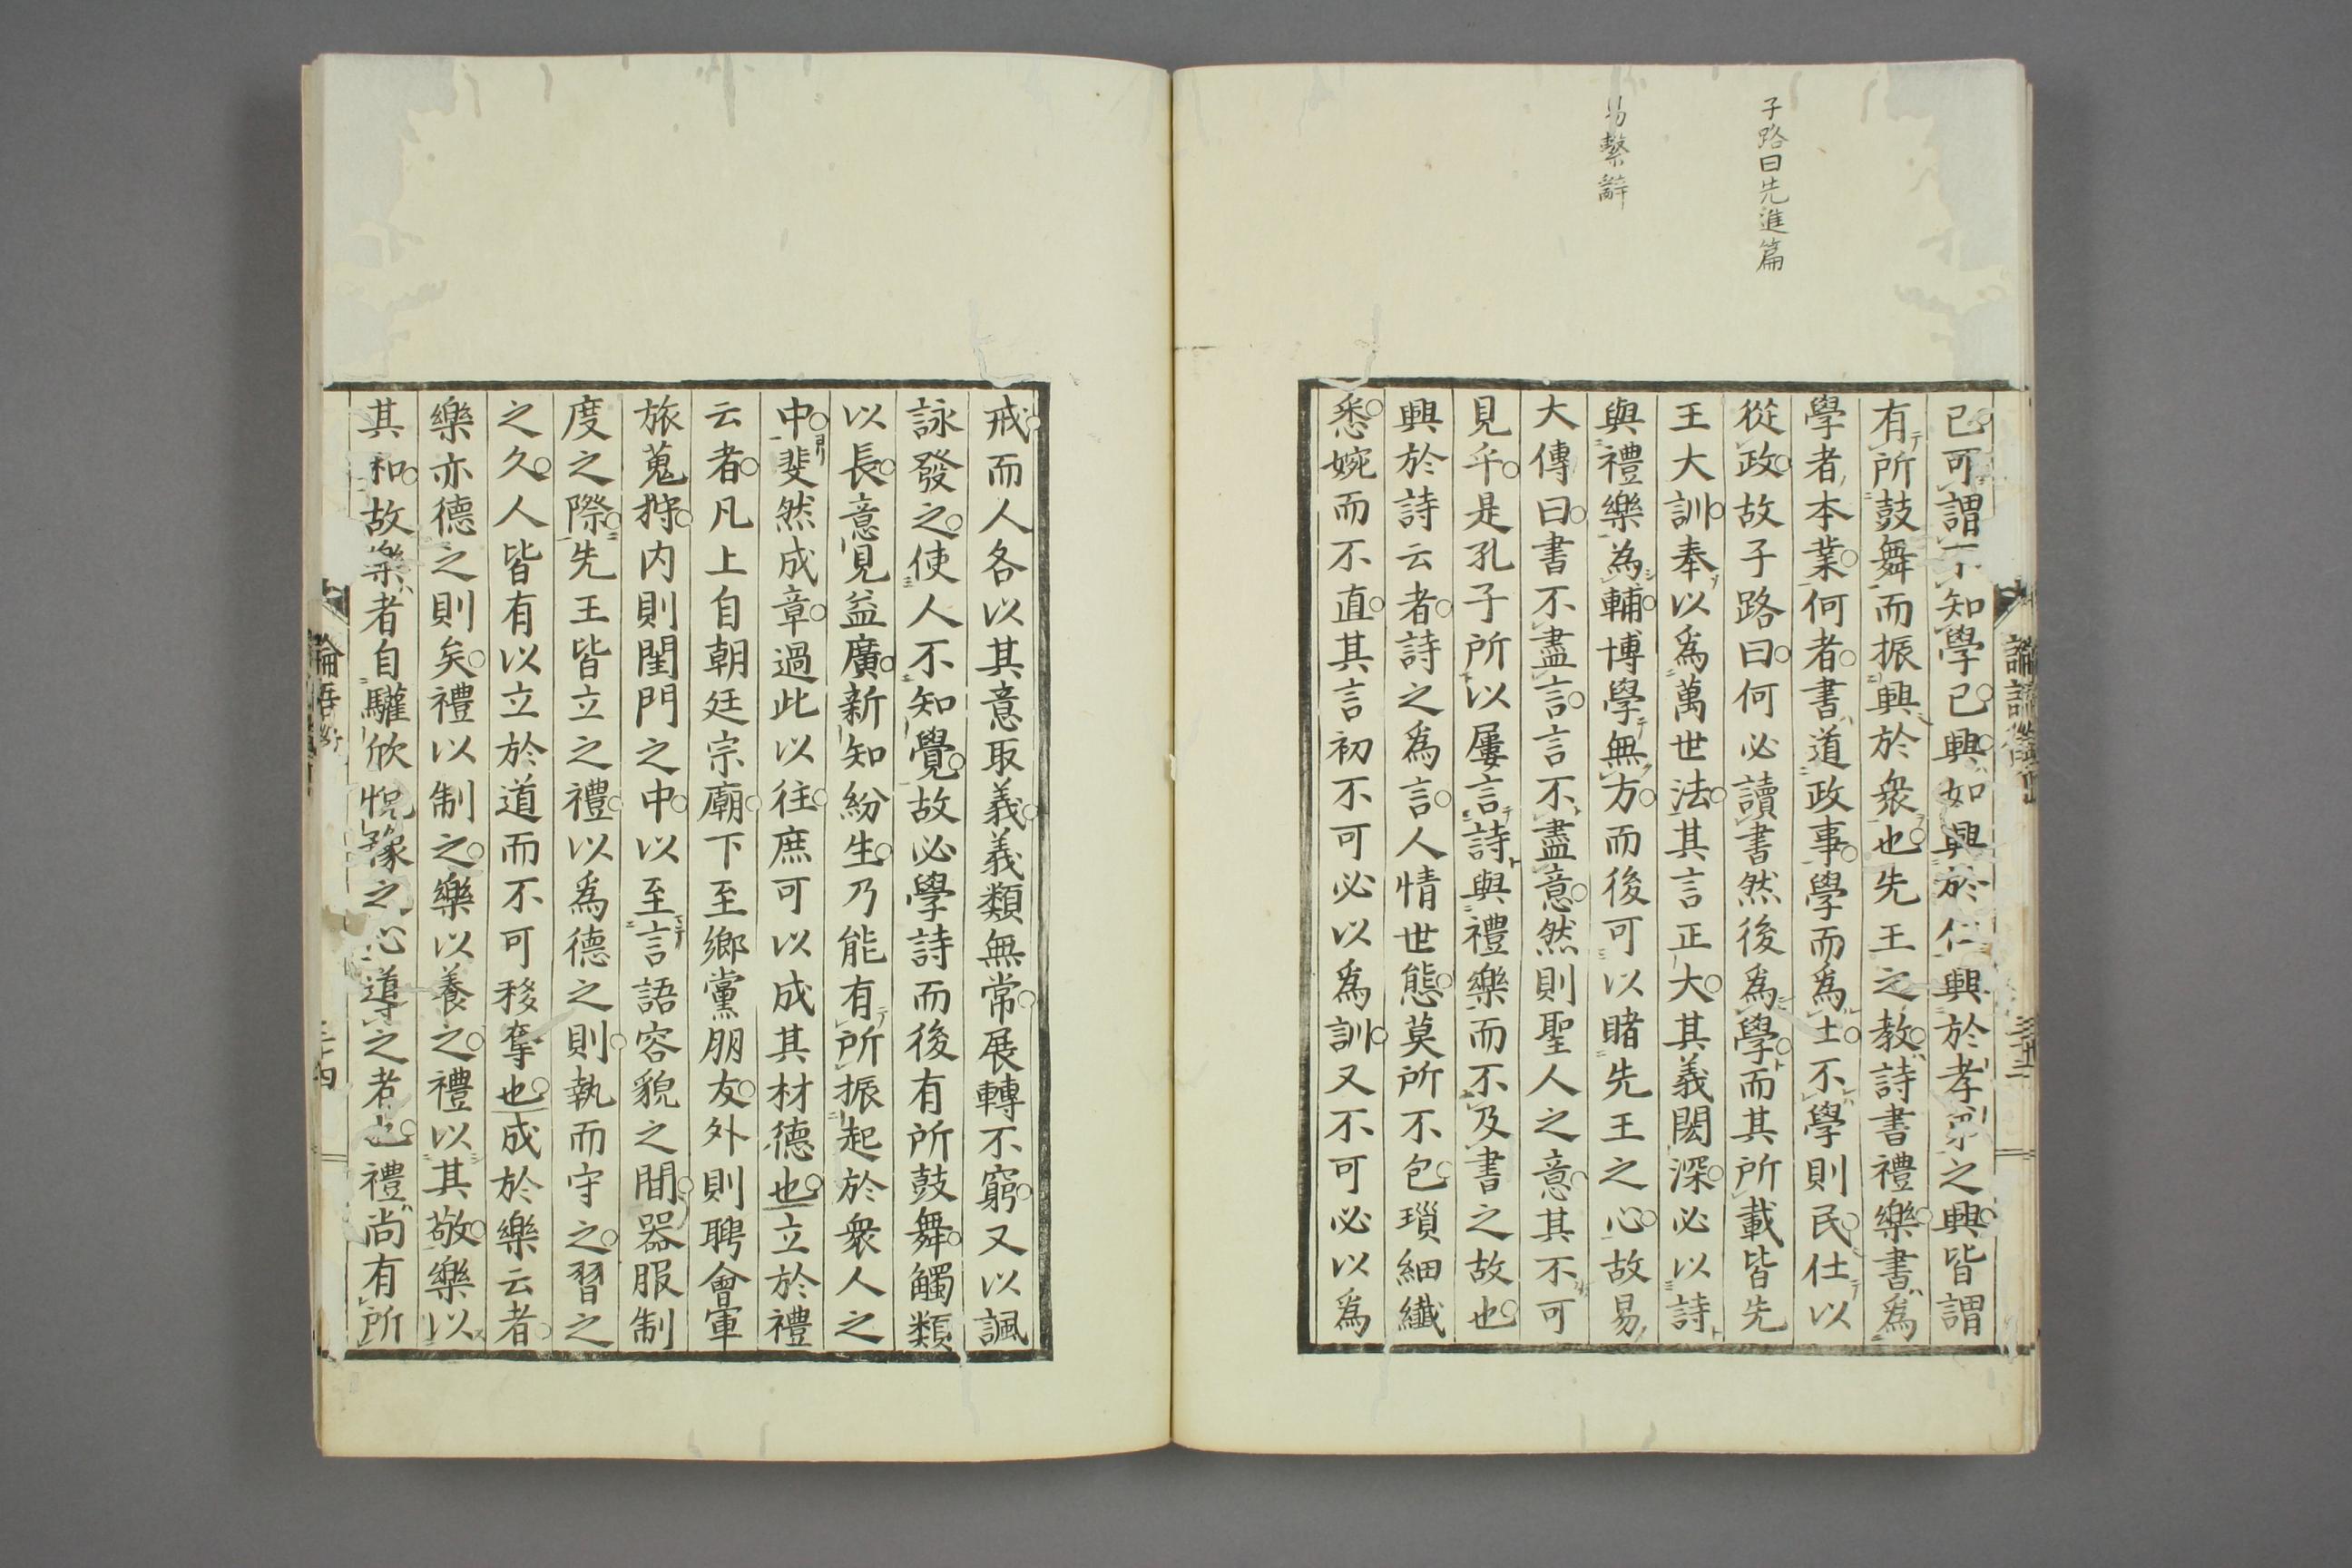 子路曰先進篇
易繫辭
已可謂不知學已興如興於仁興於孝弟之興皆謂
有所鼓舞而振興於衆也先王之教詩書禮樂書爲
學者本業何者書道政事學而爲士不學則民仕以
從政故子路曰何必讀書然後爲學而其所載皆先
王大訓奉以爲萬世法其言正大其義閎深必以詩
與禮樂為輔博學無方而後可以睹先王之心故易
大傳曰書不盡言言不盡意然則聖人之意其不可
見乎是孔子所以屢言詩與禮樂而不及書之故也
興於詩云者詩之爲言人情世態莫所不包瑣細纖
悉婉而不直其言初不可必以爲訓又不可必以爲
戒而人各以其意取義義類無常展轉不窮又以諷
詠發之使人不知覺故必學詩而後有所鼓舞觸類
以長意見益廣新知紛生乃能有所振起於衆人之
中斐然成章過此以往庶可以成其材德也立於禮
云者凡上自朝廷宗廟下至鄉黨朋友外則聘會軍
旅蒐狩内則閨門之中以至言語容貌之間器服制
度之際先王皆立之禮以爲德之則執而守之習之
之久人皆有以立於道而不可移奪也成於樂云者
樂亦德之則矣禮以制之樂以養之禮以其敬樂以
其和故樂者自驩欣悅豫之心導之者也禮尚有所
論語